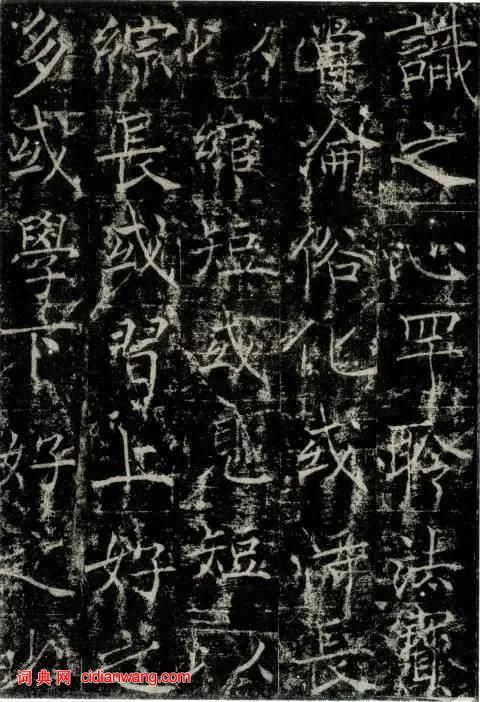 識之心罕聆法寶
淪俗化或長
縮短或短以
綜長或習上好之
多或學下好之少
词典网 cidianwang.com